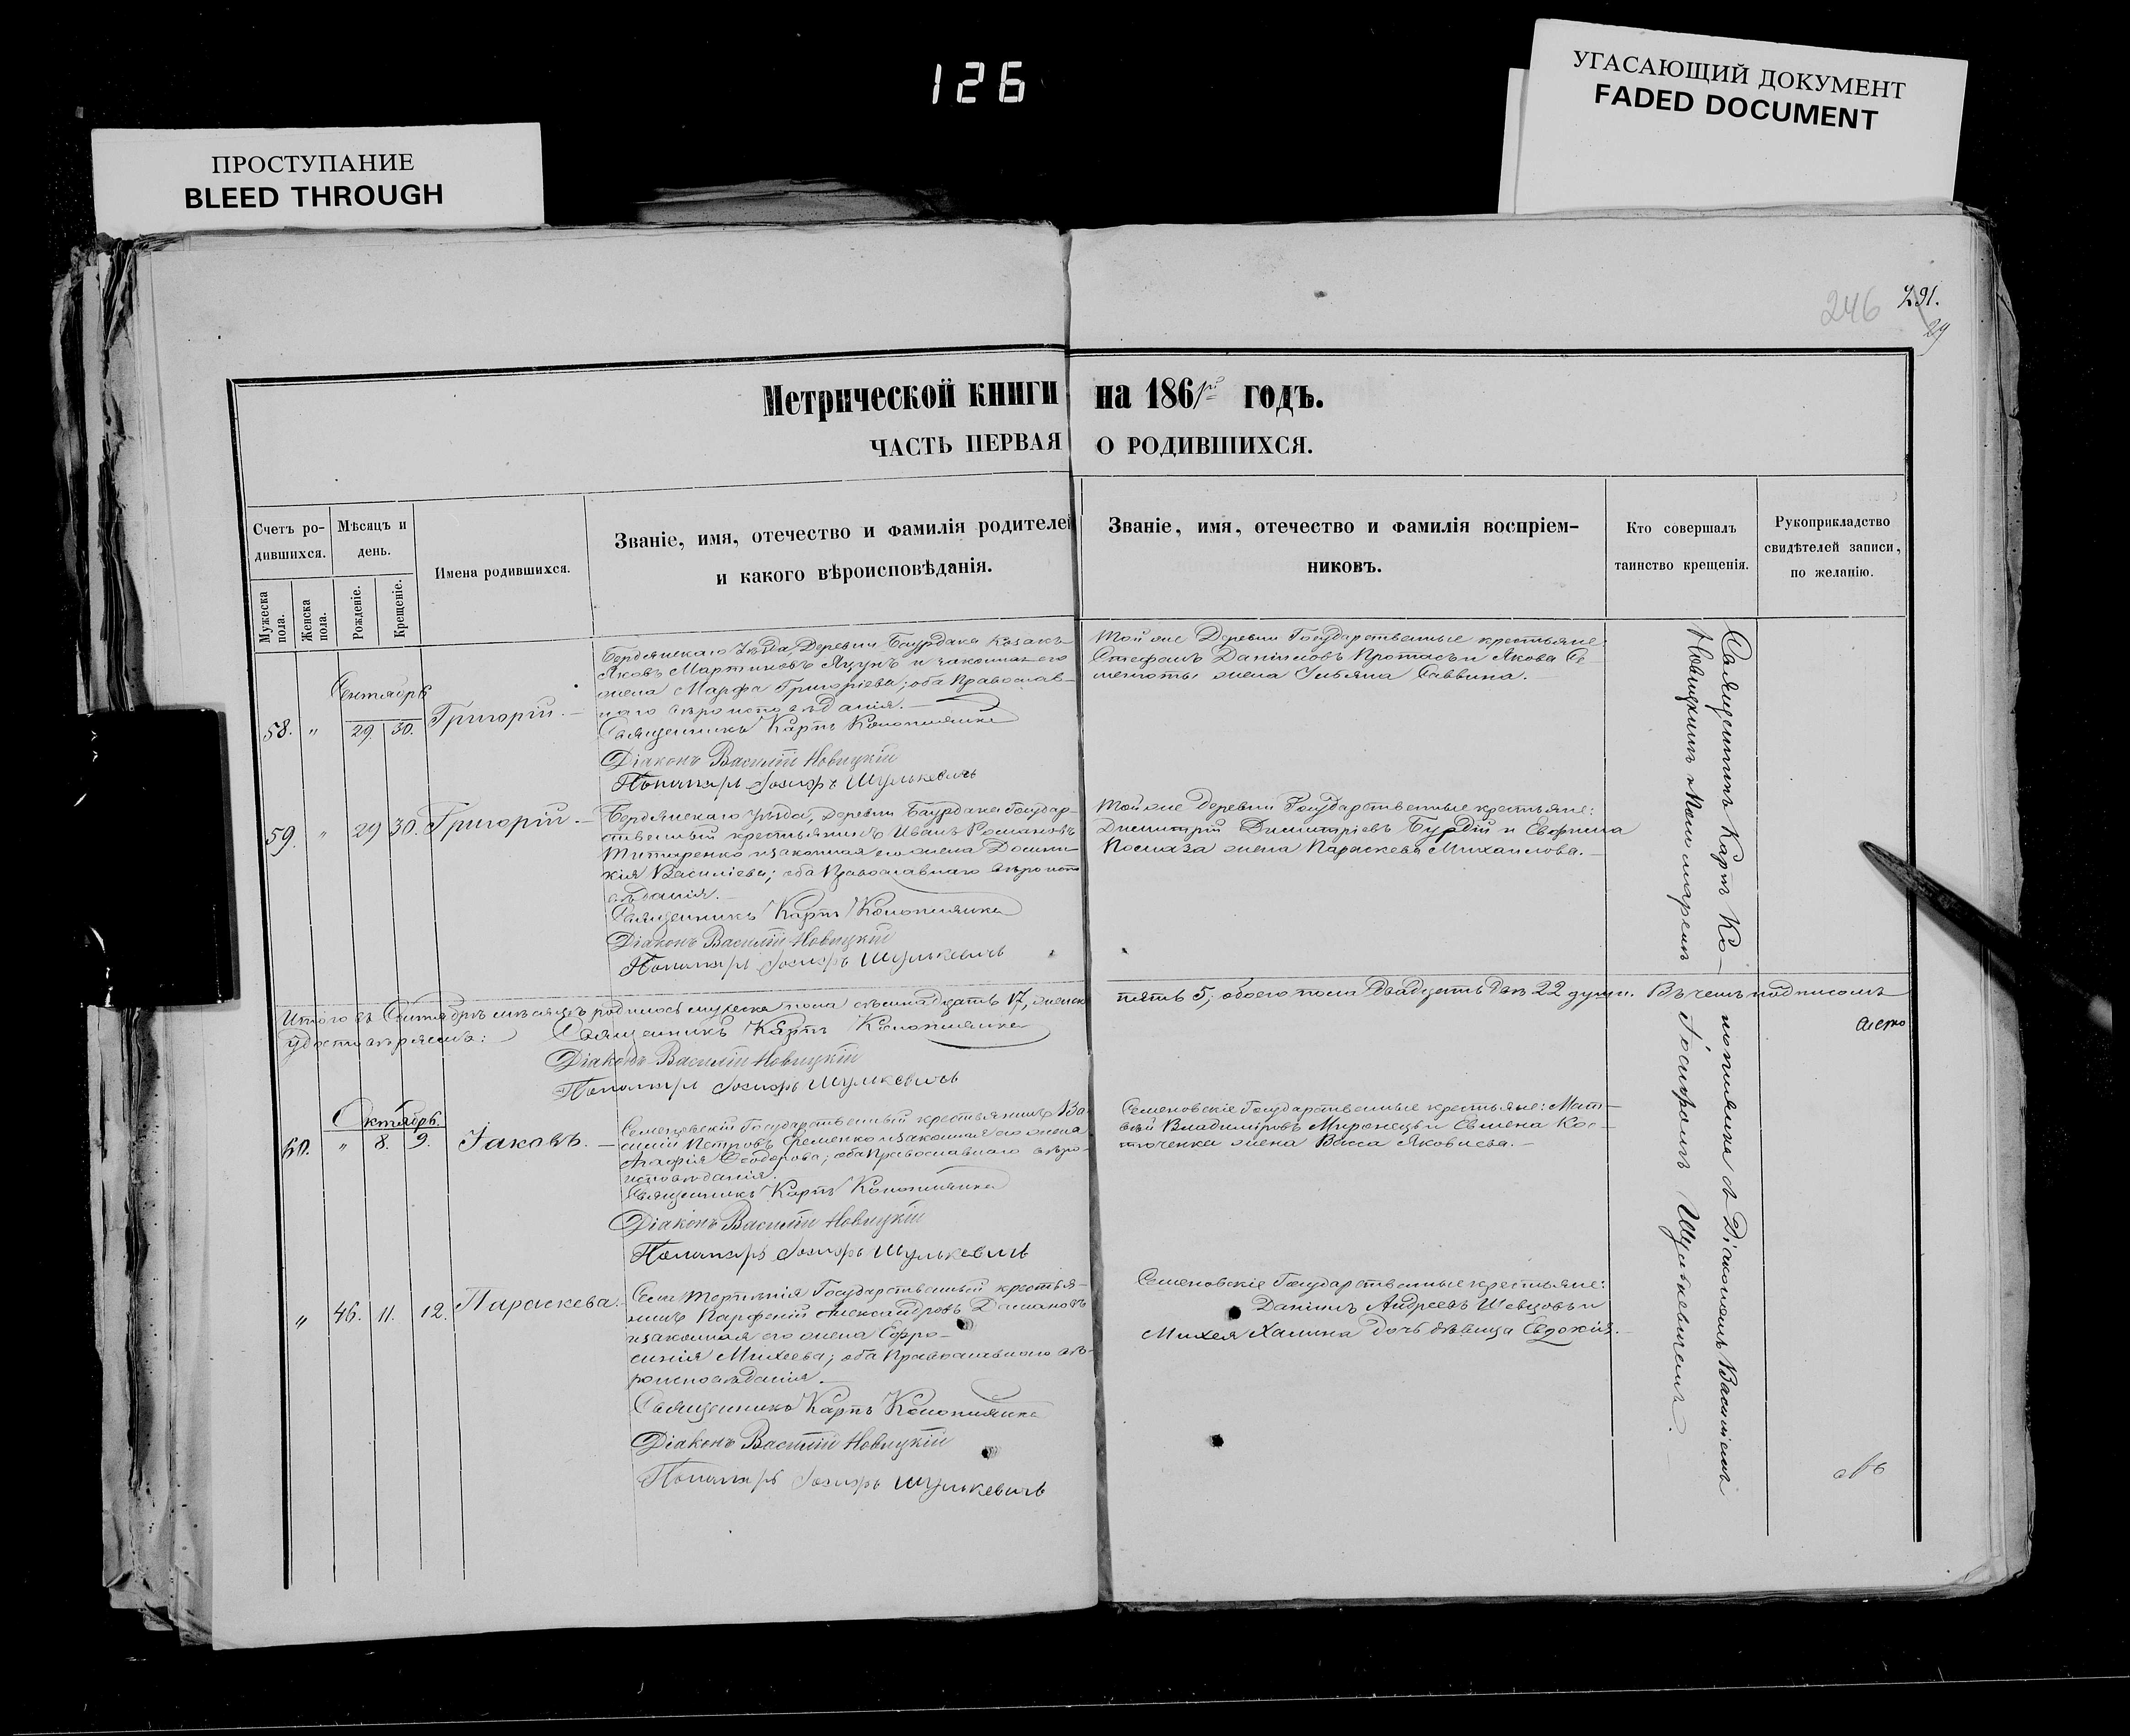 126
ПРОСТУПАНИЕ
BLEED THROUGH
УГАСАЮЩИЙ ДОКУМЕНТ
FADED DOCUMENT
246
291.
29
Метрической книги на 1861го годъ.
ЧАСТЬ ПЕРВАЯ О РОДИВШИХСЯ.
Счетъ ро-
дившихся.
Мужеска пола.
Женска пола.
Мѣсяцъ и
день.
Рожденіе.
Крещеніе.
Имена родившихся.
Званіе, имя, отечество и фамилія родителей
и какого вѣроисповѣданія.
Званіе, имя, отечество и фамилія воспріем-
никовъ.
Кто совершалъ
таинство крещенія.
Рукоприкладство
свидѣтелей записи,
по желанію.
Сентябрь
58. " 29. 30. Григорій. —
Бердянскаго Уѣзда, Деревни Баурдака Козакъ
Яковъ Мартиновъ Яцунъ и законная его
жена Марфа Григоріева; оба Православ-
наго вѣроисповѣданія. —
Священникъ Карпъ Конопляика
Діаконъ Василій Новицкій
Пономарь Іосифъ Шулькевичъ
Той же Деревни Государственные крестьяне:
Стефанъ Даніиловъ Протасъ и Якова Се-
меноты жена Ульяна Саввина. —
59. " 29 30. Григорій. —
Бердянскаго Уѣзда, деревни Баурдака Государ-
ственный крестьянинъ Иванъ Романовъ
Титаренко и законная его жена Домни-
кія Василіева; оба Православнаго вѣроиспо-
вѣданія. —
Священникъ Карпъ Конопляика
Діаконъ Василій Новицкій
Пономарь Іосифъ Шулькевичъ
Той же Деревни Государственные крестьяне:
Димитрій Димитріевъ Бурдій и Евфима
жена Параскева Михаилова. —
Итого въ Сентябрѣ мѣсяцѣ родилось мужеска пола семнадцать 17, женска
пять 5; обоего пола двадцать два 22 души. Въ чемъ подписомъ
удостовѣряемъ:
Священникъ Карпъ Конопляика
Діаконъ Василій Новицкій
Пономарь Іосифъ Шулькевичъ
Октябрь.
60. " 8. 9. Іаковъ. —
Семеновскій Государственный крестьянинъ Ва-
силій Петровъ Семенко и законная его жена
Агафія Ѳеодорова; оба Православнаго вѣро-
исповѣданія.
Священникъ Карпъ Конопляика
Діаконъ Василій Новицкій
Пономарь Іосифъ Шулькевичъ
Семеновскіе Государственные крестьяне: Мат-
вѣй Владиміровъ Миронецъ и Семена Кос-
тюченка жена Васса Яковлева. —
" 46. 11. 12. Параскева.
Села Терпѣнія Государственный крестья-
нинъ Парфеній Александровъ
и законная его жена Ефро-
синія Михеева; оба Православнаго вѣ-
роисповѣданія. —
Священникъ Карпъ Конопляика
Діаконъ Василій Новицкій
Пономарь Іосифъ Шулькевичъ
Семеновскіе Государственные крестьяне:
Даніилъ Андреевъ Шевцовъ и
Михея Халина дочь дѣвица Евдокія. —
Священникъ Карпъ Ко-
нопляика съ Діакономъ Василіемъ
Новицкимъ и Пономаремъ
Іосифомъ Шулькевичемъ.